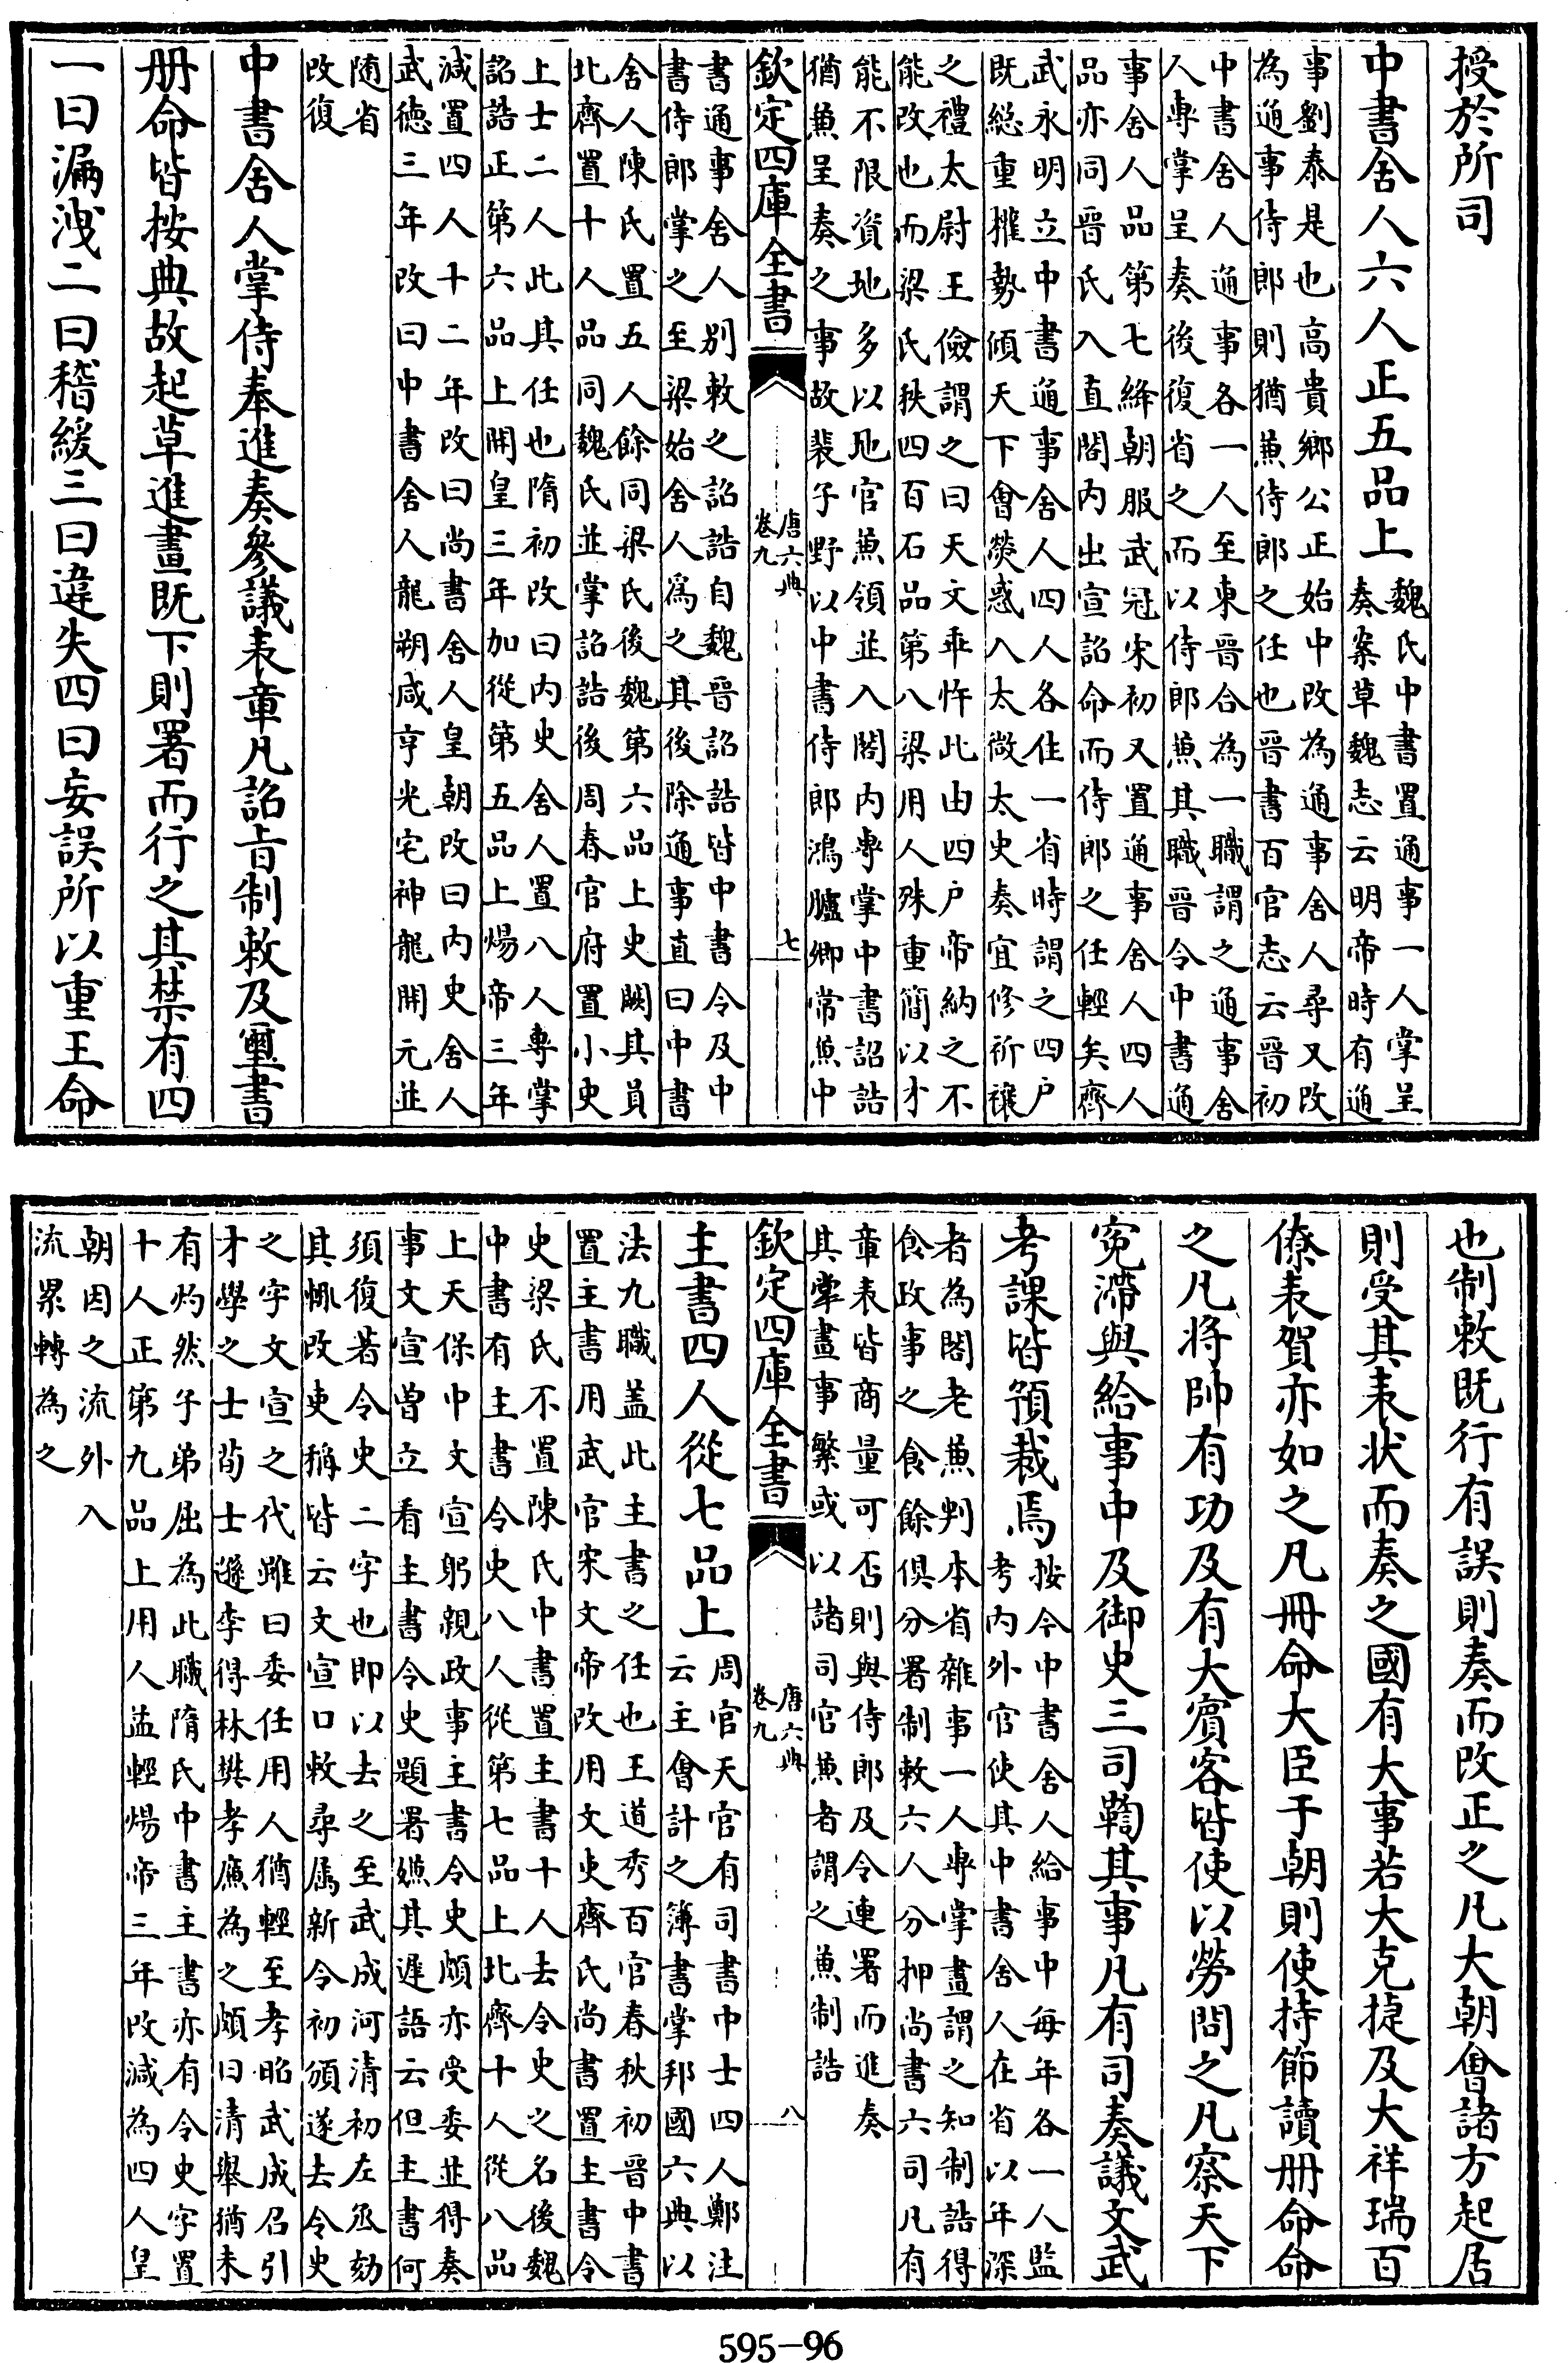 授於所司
中書舍人六人正五品上
魏氏中書置通事一人掌呈
奏案草魏志云明帝時有通
事劉泰是也高貴鄉公正始中改為通事舍人尋又改
為通事侍郎則猶兼侍郎之任也晉書百官志云晉初
中書舍人通事各一人至東晉合為一職謂之通事舍
人專掌呈奏後復省之而以侍郎兼其職晉令中書通
事舍人品第七絳朝服武冠宋初又置通事舍人四人
品亦同晉氏入直閤内出宣詔命而侍郎之任輕矣齊
武永明立中書通事舍人四人各住一省時謂之四户
既総重權勢傾天下會熒惑入太微太史奏宜修祈禳
之禮太尉王儉謂之曰天文乖忤此由四户帝納之不
能改也而梁氏秩四百石品第八梁用人殊重簡以才
能不限資地多以他官兼領並入閤内專掌中書詔誥
猶兼呈奏之事故裴子野以中書侍郎鴻臚卿常兼中
欽定四庫全書
唐六典
卷九
七
書通事舍人别敕之詔誥自魏晉詔誥皆中書令及中
書侍郎掌之至梁始舍人為之其後除通事直曰中書
舍人陳氏置五人餘同梁氏後魏第六品上史闕其員
北齊置十人品同魏氏並掌詔誥後周春官府置小史
上士二人此其任也隋初改曰内史舍人置八人專掌
詔誥正第六品上開皇三年加從第五品上煬帝三年
減置四人十二年改曰尚書舍人皇朝改曰内史舍人
武德三年改曰中書舍人龍朔咸亨光宅神龍開元並
随省
改復
中書舍人掌侍奉進奏參議表章凡詔旨制敕及璽書
册命皆按典故起草進畫既下則署而行之其禁有四
一曰漏洩二曰稽緩三曰違失四曰妄誤所以重王命
也制敕既行有誤則奏而改正之凡大朝會諸方起居
則受其表状而奏之國有大事若大克捷及大祥瑞百
僚表賀亦如之凡冊命大臣于朝則使持節讀册命命
之凡将帥有功及有大賓客皆使以勞問之凡察天下
寃滯與給事中及御史三司鞫其事凡有司奏議文武
考課皆預裁焉
按今中書舍人給事中每年各一人監
考内外官使其中書舍人在省以年深
者為閣老兼判本省雜事一人專掌畫謂之知制誥得
食政事之食餘俱分署制敕六人分押尚書六司凡有
章表皆商量可否則與侍郎及令連署而進奏
其掌畫事繁或以諸司官兼者謂之兼制誥
欽定四庫全書
唐六典
卷九
八
主書四人從七品上
周官天官有司書中士四人鄭注
云主會計之簿書掌邦國六典以
法九職盖此主書之任也王道秀百官春秋初晉中書
置主書用武官宋文帝改用文吏齊氏尚書置主書令
史梁氏不置陳氏中書置主書十人去令史之名後魏
中書有主書令史八人從第七品上北齊十人從八品
上天保中文宣躬親政事主書令史頗亦受委並得奏
事文宣曾立看主書令史題署嫌其遲語云但主書何
須復著令史二字也即以去之至武成河清初左丞劾
其輒改吏稱皆云文宣口敕尋屬新令初頒遂去令史
之字文宣之代雖曰委任用人猶輕至孝昭武成召引
才學之士荀士遜李得林樊孝廉為之頗曰清舉猶未
有灼然子弟屈為此職隋氏中書主書亦有令史字置
十人正第九品上用人益輕煬帝三年改減為四人皇
朝因之流外入
流累轉為之
595-96